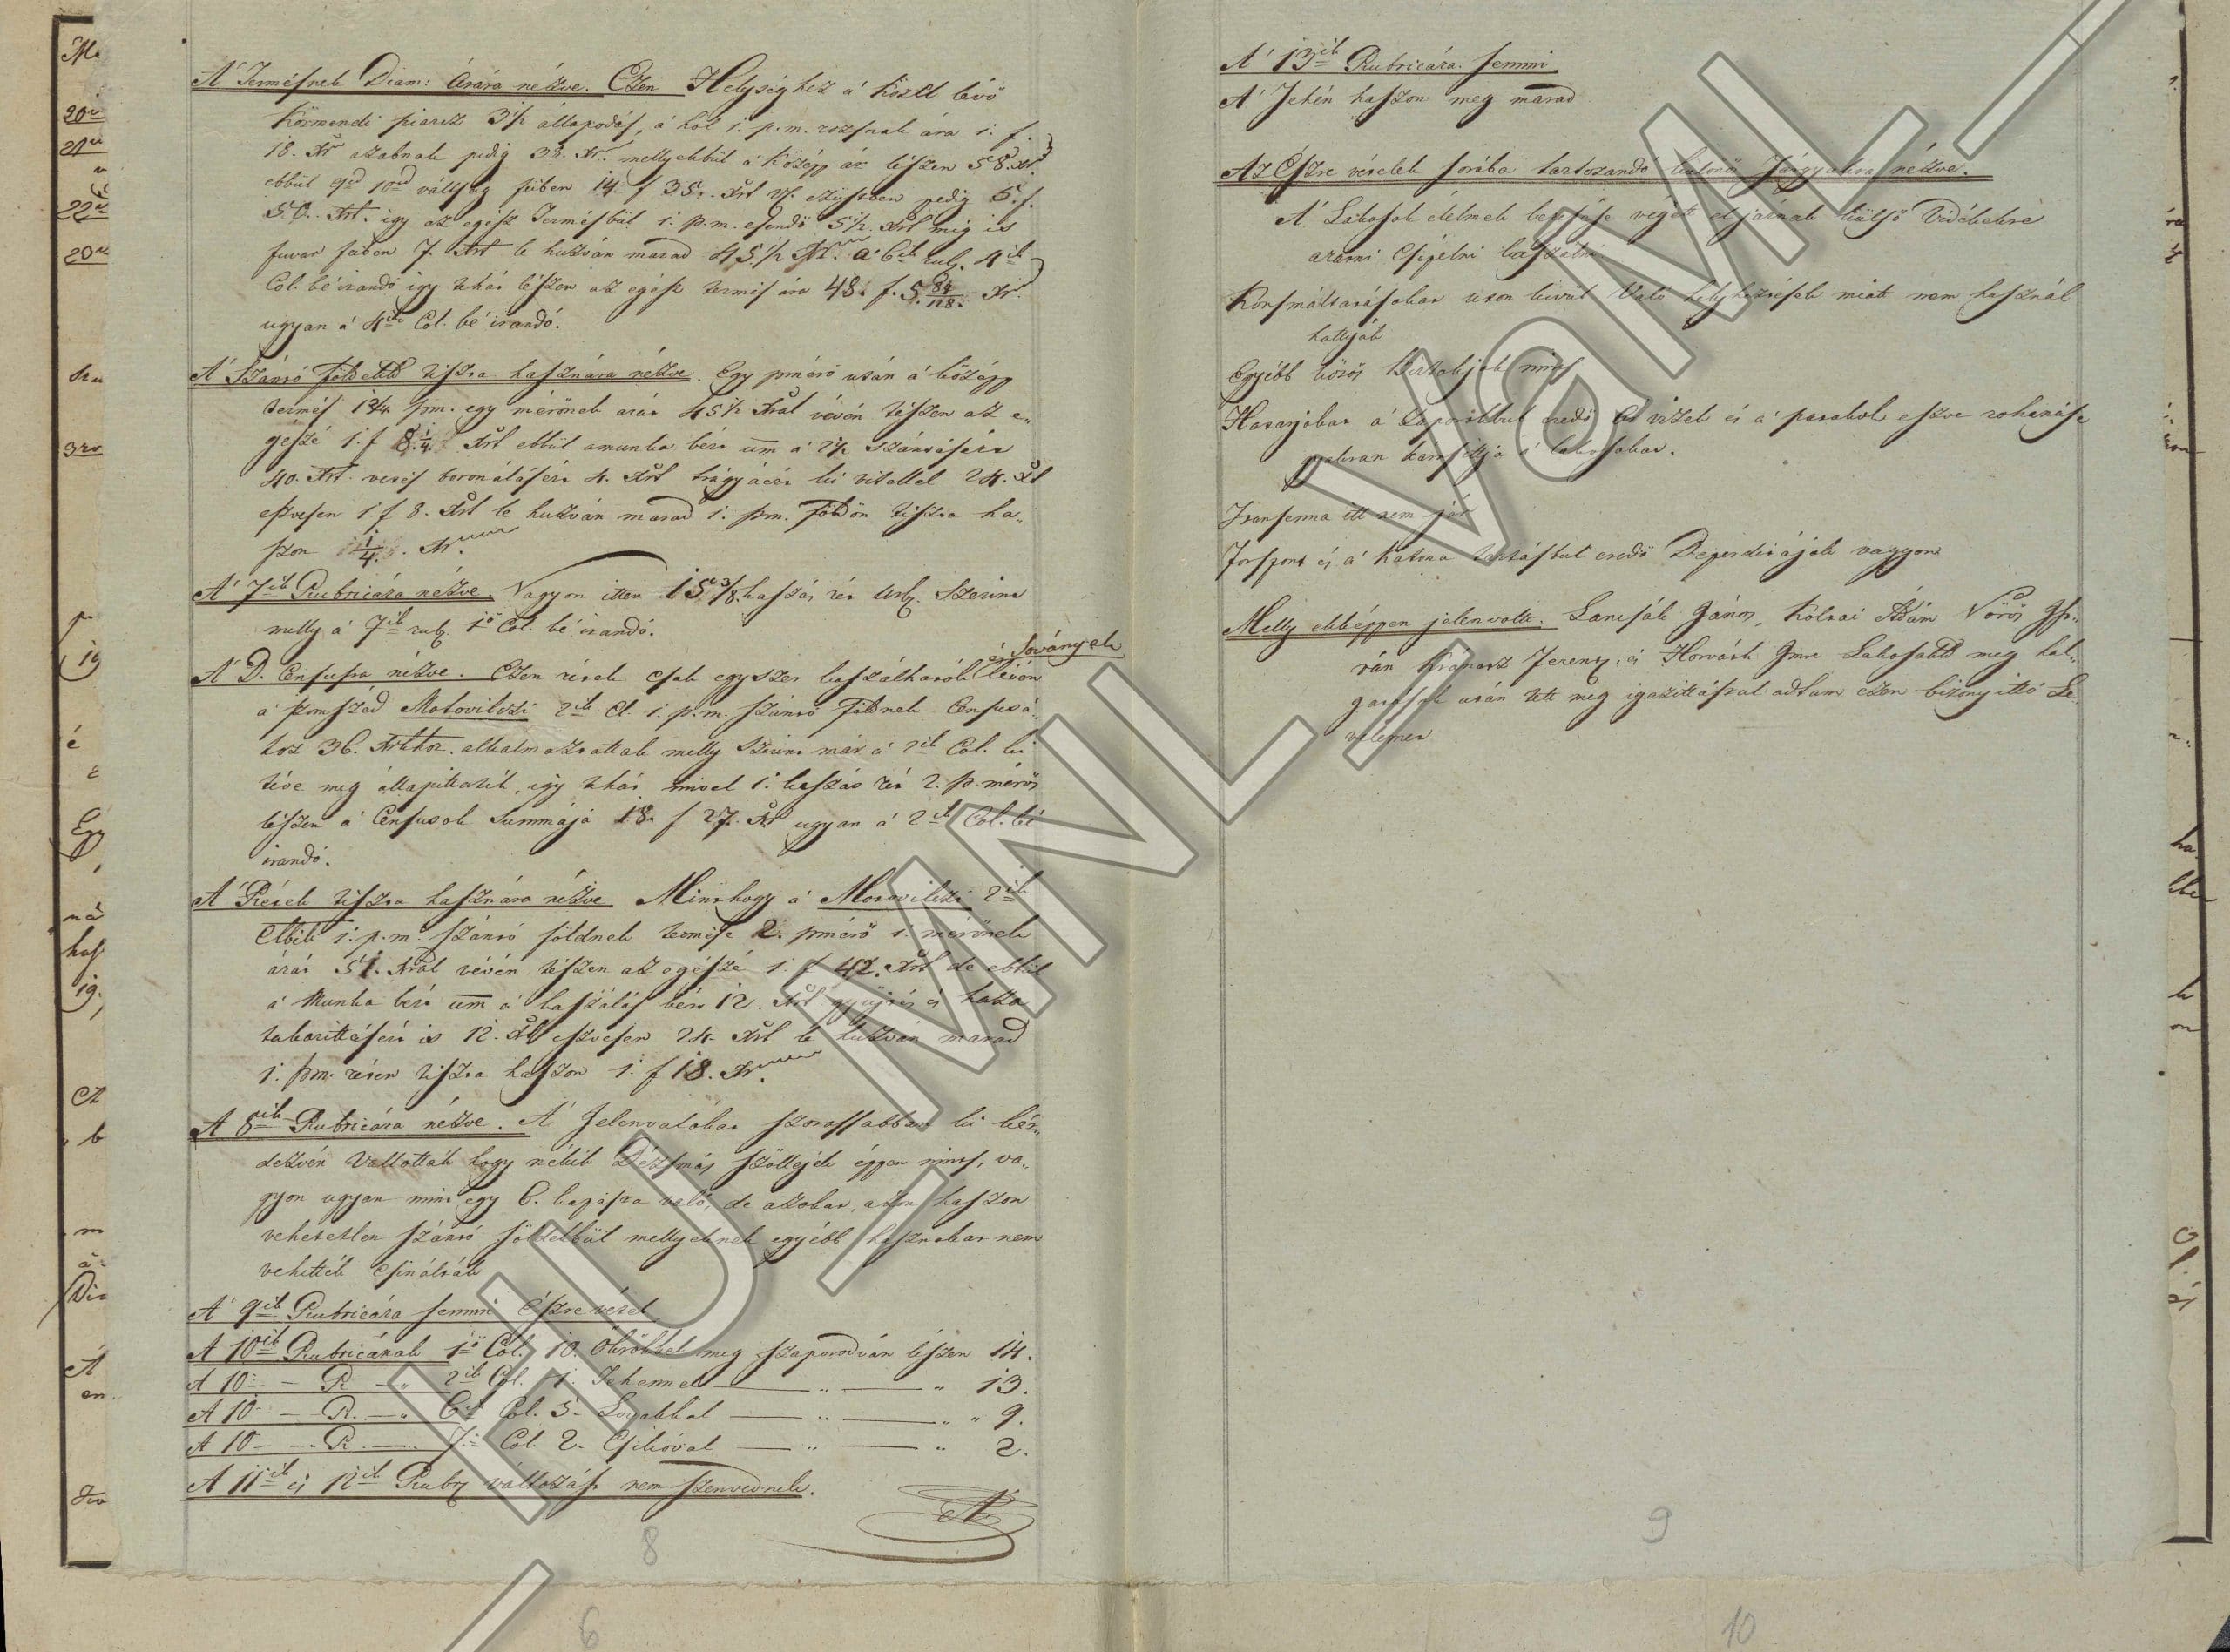 A' Termésnek Diam: Árára nézve. Ezen Helységhez a' közel lévő
Körmendi piarcz 3 1/2 állapodás, a' hol 1. p. m. rozsnak ára 1. f.
18. Xr azabnak pedig 38. Xr. mellyekbül a' közép ár lészen 58. Xr.
ebbül 9ed 10ed váltság fejben 14. f 35. Xrt Vf. ezüstben pedig 5. f.
50. Xrt. igy az egész Termésbül 1. p. m. esendő 5 1/2. Xrt mig is
fuvar fejben 7. Xrt le huzván marad 45 1/2 Xr. a' 6ik rub. 4ik
Col. bé irandó igy tehát lészen az egész termés ára 48. f. 5 89/128. Xr.
ugyan a' 4ik Col. bé irandó.
A' Szántó földekk tiszta hasznára nézve. Egy pmérő után a' középp
termés 1 3/4. pm. egy mérőnek árát 45 1/2 Xral vévén tészen az e„
gészé 1. f 8. 1/4. Xrt ebbül amunka béri um a' 2 1/2 Szántásért
40. Xrt. vetés boronálásért 4. Xrt trágyáért ki vitellel 24. Xrt
eszvesen 1. f 8. Xrt le huzván marad 1. pm. földön tiszta ha„
szon 1/4. Xr.
A' 7ik Rubricára nézve. Vagyon itten 15 3/8. kaszás rét Urb. Szerint
melly a' 7ik rub. 1ő Col. bé irandó.
A' D. Censusra nézve. Ezen rétek csak egyszer kaszálhatók és soványok lévén
a' szomszéd Motovilczi 2ik Cl. 1. p. m. szántó földnek Censusá„
hoz 36. Xrhoz. alkalmaztattak melly Szerint már a' 2ik Col. ki
téve meg állapittatik, igy tehát mivel 1. kaszás rét 2. p. mérős
lészen a' Censusok Summája 18. f 27. Xr ugyan a' 2ik Col. bé
irandó.
A' Rétek tiszta hasznára nézve Minthogy a' Motovilczi 2ik
Clbéli 1. p. m. szántó földnek termése 2. pmérő 1. mérőnek
árát 51. Xral vévén tészen az egészé 1. f 42. Xrt de ebbül
a' Munka béri um a' kaszálás bére 12. Xrt gyüjtés és haza
takarittásért is 12. Xrt eszvesen 24. Xrt le huzván marad
1. pm. réten tiszta haszon 1. f 18. Xr.
A' 8ik Rubricára nézve. A' Jelenvalókat szorossabban ki kér„
dezvén Vallották hogy nékik Dézsmás szöllejek éppen nincs, va„
gyon ugyan mint egy 6. kapásra való, de azokat, azon haszon
vehetetlen szántó földekbül mellyeknek egyébb hasznokat nem
vehették Csinálták
A' 9ik Rubricára semmi észre vétel
A' 10ik Rubricának 1ő Col. 10. Ökrökkel meg szaporodván lészen 14.
A' 10 — R — „ 2ik Col. 1. Tehennel — „ — „ 13.
A' 10 — R. — „ 6ik Col. 5. Lovakkal — „ — „ „ 9.
A' 10 — R — 7ik Col. 2. Csikóval — „ — „ 2.
A' 11ik és 12ik Rubr változást nem szenvednek.
8
6
A' 13ik Rubricára. semmi.
A' Tehén haszon meg marad
Az Észre vételek sorába tartozandó különös Tárgyakra nézve.
A' Lakosok élelmek keresése végett el járnak külső Vidékekre
aratni Csépelni kaszálni
Korsmáltatásokat uton kivül Való helyheztések miatt nem használ
hattyák
Egyébb közös Birtokjok nincs
Hatarjokat a' Záporokbul eredő ki vizek és a' patakok eszve rohanása
gyakran károsittja a' lakosokat.
Transenna itt nem jár
Forspont és a' Katona tartásbul eredő Deperditájok vagyon
Melly ekképpen jelenvolt. Lancsák János, Koltai Ádám Vörös Ist„
ván Kránasz Ferencz, és Horváth Imre Lakosokk meg hal„
gatások után tett meg igazittással adtam ezen bizonyittó Le„
velemet
9
10